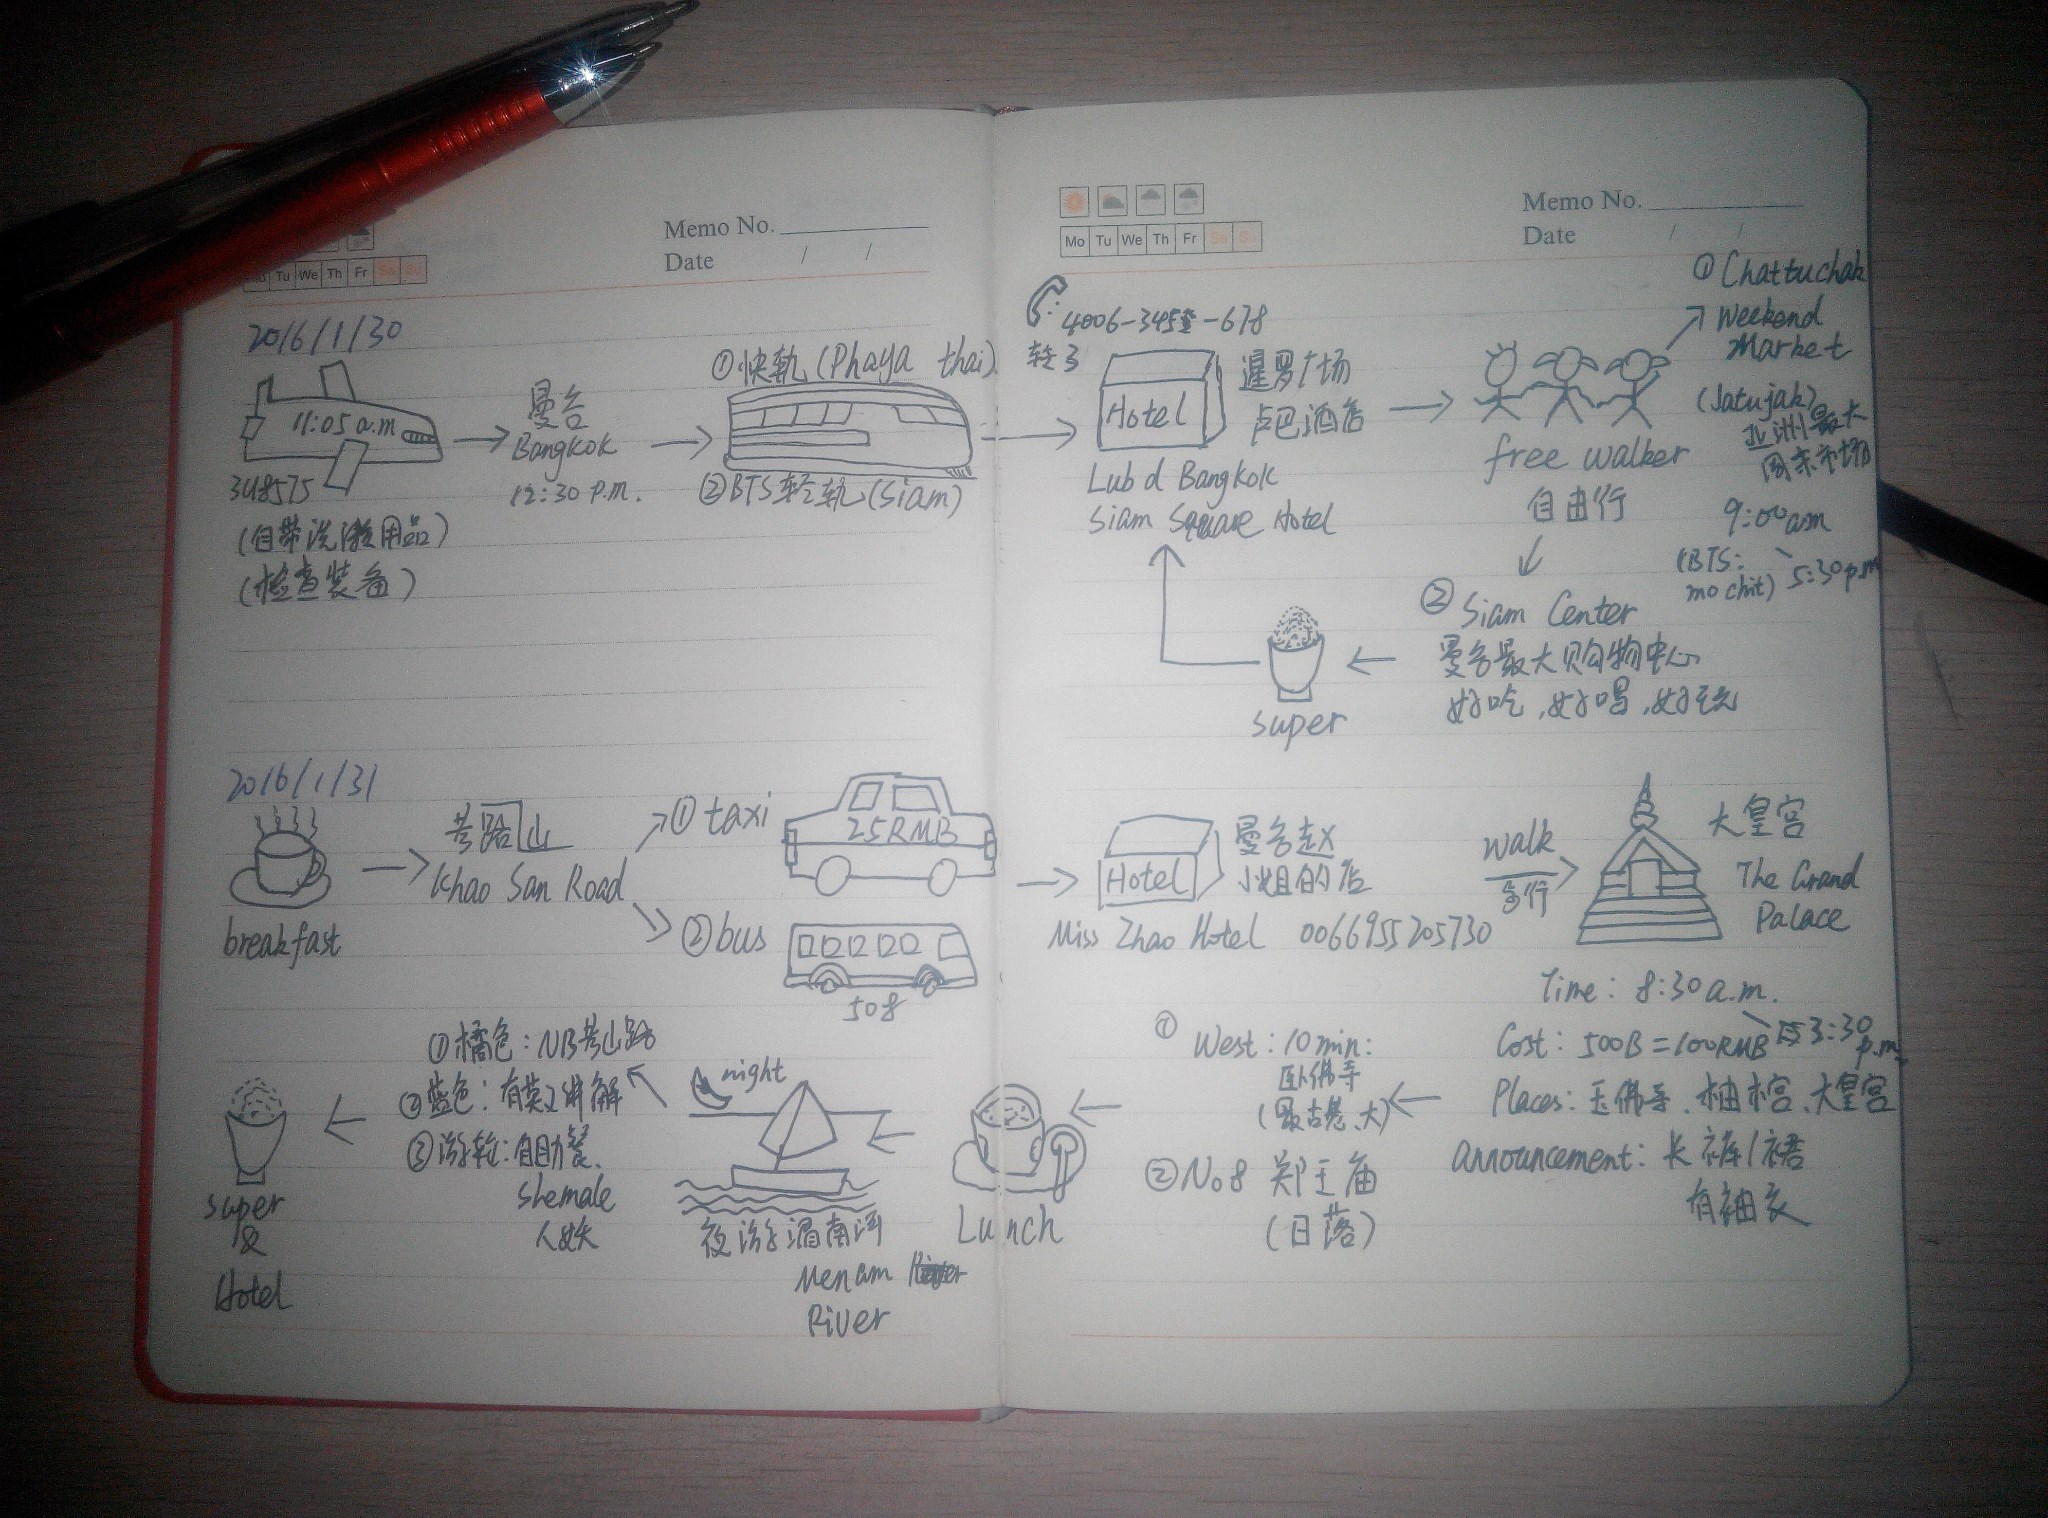 Tu We Th Fr Sa Su
Memo No.
Date / /
2016/1/30
11:05 a.m
(自带洗漱用品)
(检查装备)
曼谷
Bangkok
12:30 p.m.
①快轨(Phaya thai)
②BTS轻轨(Siam)
Mo Tu We Th Fr Sa Su
Memo No.
Date / /
Hotel
暹罗广场
卢巴酒店
Lub d Bangkok
Siam Square Hotel
free walker
自由行
① Chattuchak
Weekend
Market
(Jatujak)
亚洲最大
9:00am
5:30p.m
(BTS:
mo chit)
② Siam Center
曼谷最大购物中心
好吃,好喝,好玩
super
2016/1/31
breakfast
Khao San Road
① taxi
25RMB
② bus
508
Hotel
曼谷赵
小姐的店
Miss Zhao Hotel 0066955205730
walk
大皇宫
The Grand
Palace
Time: 8:30 a.m.
3:30
p.m.
Cost: 500B = 100RMB
Places: 玉佛寺、柚木宫、大皇宫
Announcement: 长裤/裙
有袖衣
① West: 10min:
卧佛寺
(最古老、大)
② No8 郑王庙
(日落)
Lunch
night
夜游湄南河
Menam
River
①橘色:
②蓝色: 有英文讲解
③游轮: 自助餐、
Shemale
人妖
super
&
Hotel